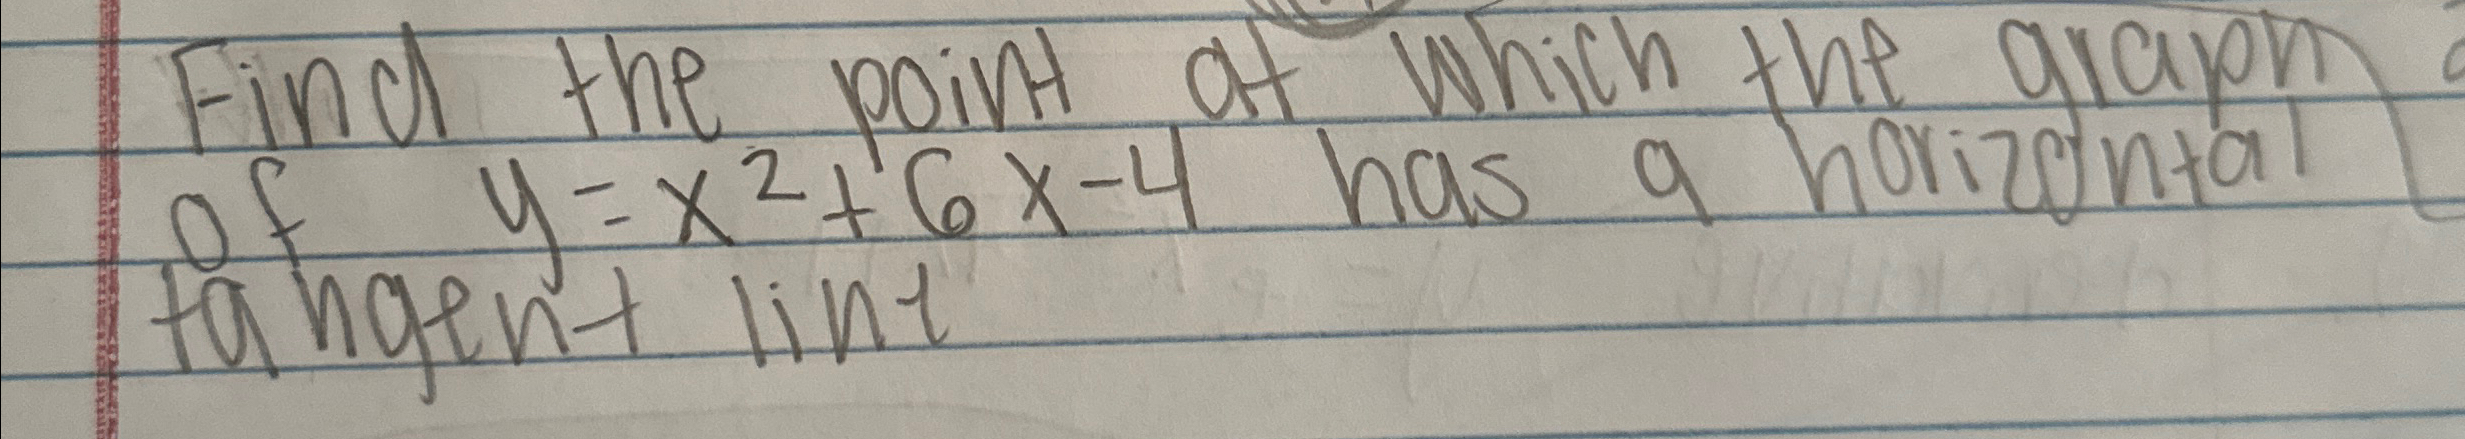 Find the point at which the graph
of y = x² + 6x - 4 has a horizontal
tangent line